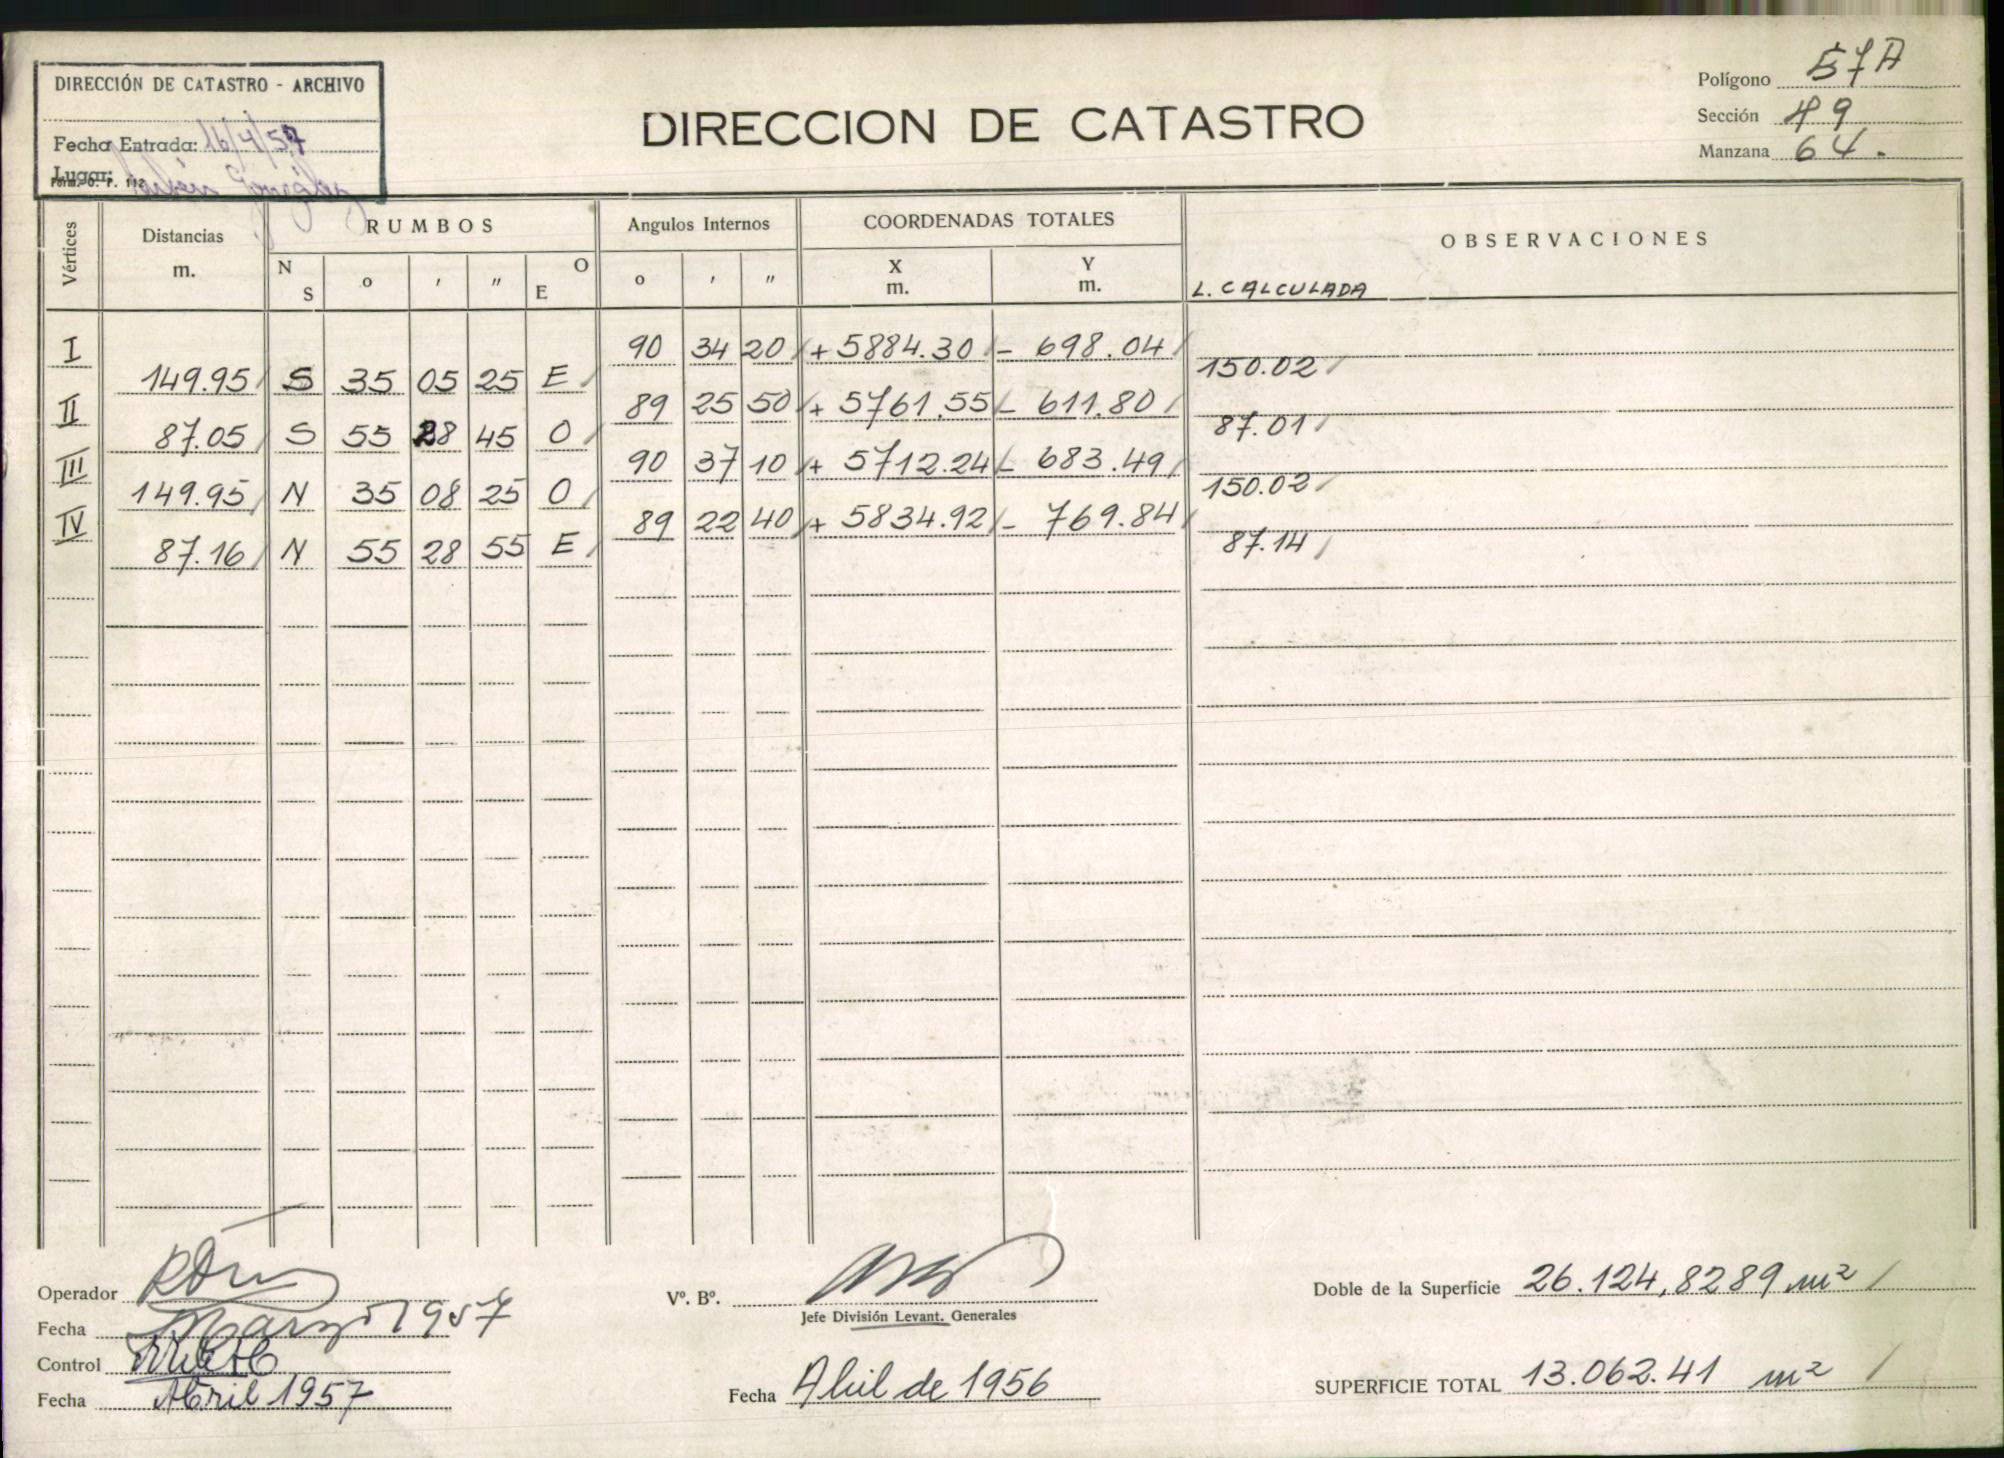 DIRECCIÓN DE CATASTRO - ARCHIVO
Fecha Entrada: 16/4/57
Lugar:
Form. O. P. 112
DIRECCION DE CATASTRO
Polígono 57A
Sección 49
Manzana 64.
Vértices Distancias m. RUMBOS Angulos Internos COORDENADAS TOTALES OBSERVACIONES
N S o ′ ″ O E o ′ ″ X m. Y m. L. CALCULADA
I 90 34 20 + 5884.30 - 698.04
149.95 S 35 05 25 E 150.02
II 89 25 50 + 5761.55 - 611.80
87.05 S 55 28 45 O 87.01
III 90 37 10 + 5712.24 - 683.49
149.95 N 35 08 25 O 150.02
IV 89 22 40 + 5834.92 - 769.84
87.16 N 55 28 55 E 87.14
Operador
Fecha Marzo 1957
Control
Fecha Abril 1957
Vº. Bº.
Jefe División Levant. Generales
Fecha Abril de 1956
Doble de la Superficie 26.124,8289 m²
SUPERFICIE TOTAL 13.062.41 m²